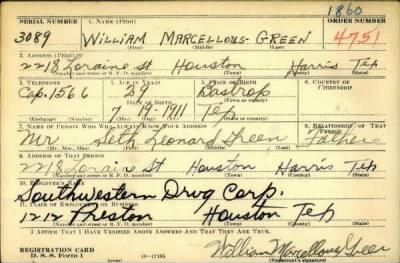 1860
SERIAL NUMBER 1. NAME (Print) ORDER NUMBER
3089 WILLIAM MARCELLOUS GREEN 4751
(First) (Middle) (Last)
2. ADDRESS (Print)
2218 Loraine St Houston Harris Tex
(Number and street or R. F. D. number) (Town) (County) (State)
3. TELEPHONE 4. AGE IN YEARS 5. PLACE OF BIRTH 6. COUNTRY OF CITIZENSHIP
Cap. 1566 29 Bastrop
DATE OF BIRTH (Town or county)
7-19-1911 Tex
(Exchange) (Number) (Mo.) (Day) (Yr.) (State or country)
7. NAME OF PERSON WHO WILL ALWAYS KNOW YOUR ADDRESS 8. RELATIONSHIP OF THAT PERSON
Mr Seth Leonard Green Father
(Mr., Mrs., Miss) (First) (Middle) (Last)
9. ADDRESS OF THAT PERSON
2218 Loraine St Houston Harris Tex
(Number and street or R. F. D. number) (Town) (County) (State)
10. EMPLOYER'S NAME
Southwestern Drug Corp.
11. PLACE OF EMPLOYMENT OR BUSINESS
1212 Preston Houston Tex
(Number and street or R. F. D. number) (Town) (County) (State)
I AFFIRM THAT I HAVE VERIFIED ABOVE ANSWERS AND THAT THEY ARE TRUE.
REGISTRATION CARD
D. S. S. Form 1 16-17105 William Marcellous Green
(Registrant's signature)